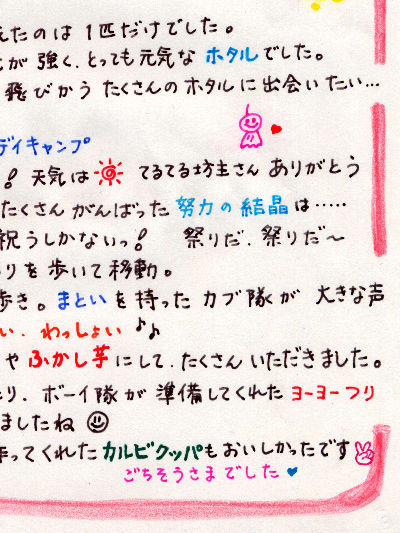 えたのは1匹だけでした。
が強く、とっても元気なホタルでした。
飛びかうたくさんのホタルに出会いたい…
デイキャンプ
! 天気は てるてる坊主さん ありがとう
たくさん がんばった 努力の結晶は‥‥‥
祝うしかないっ! 祭りだ、祭りだ〜
りを歩いて移動。
歩き。まといを持った カブ隊が 大きな声
い、わっしょい♪♪
や ふかし芋にして、たくさん いただきました。
り、ボーイ隊が 準備してくれた ヨーヨーつり
ましたね
ってくれた カルビクッパも おいしかったです
ごちそうさまでした